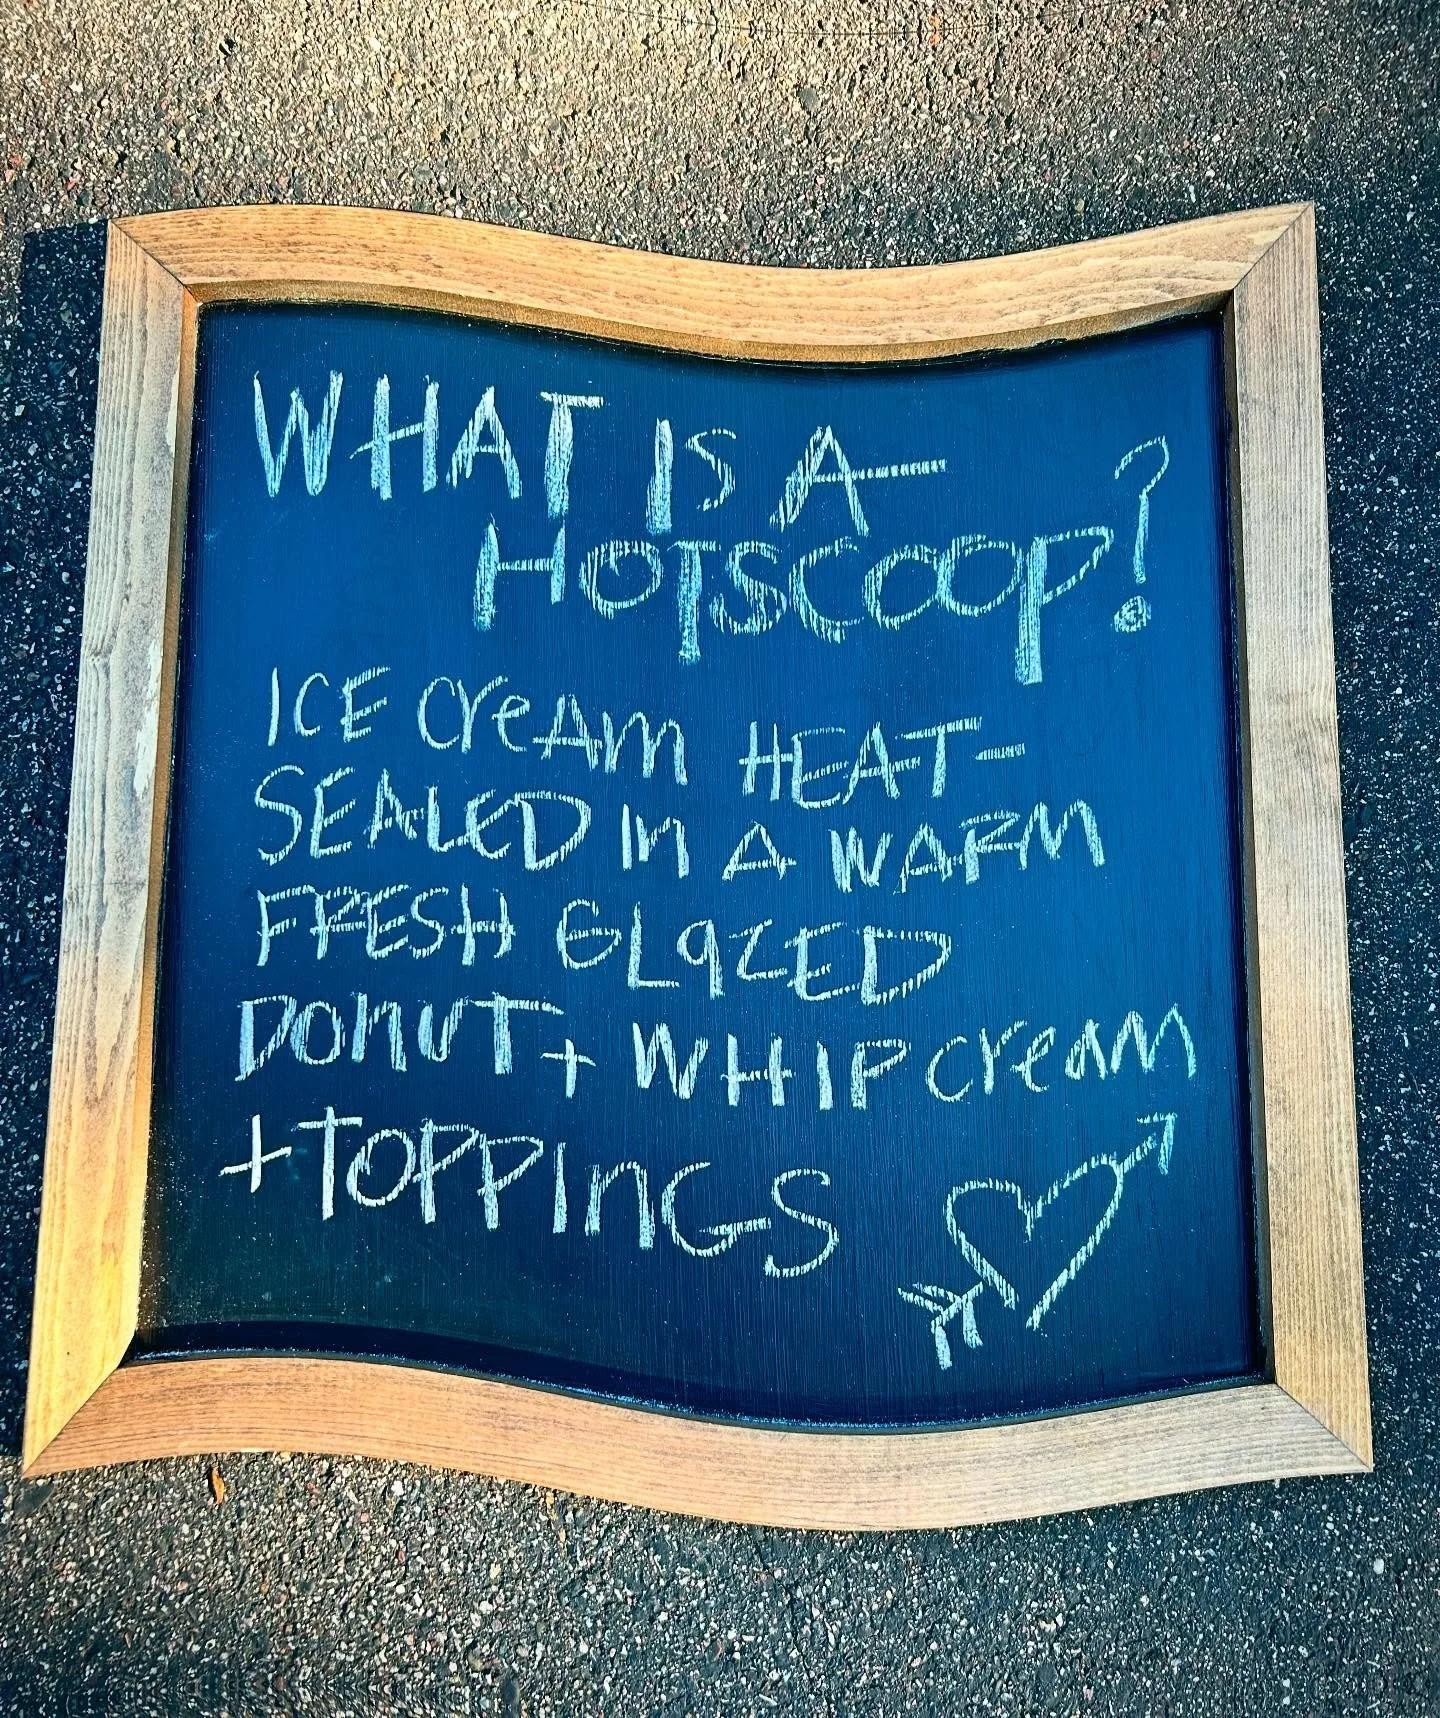 WHAT IS A
HOTSCOOP?
ICE CreAM HEAT-
SEALED In A WARM
FRESH GLaZED
DOnuT + WHIP cream
+ TOPPInGS